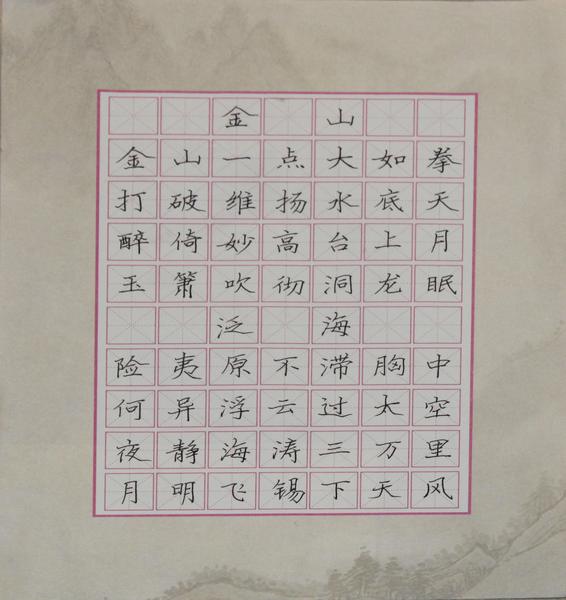 金山
金山一点大如拳
打破维扬水底天
醉倚妙高台上月
玉箫吹彻洞龙眠
泛海
险夷原不滞胸中
何异浮云过太空
夜静海涛三万里
月明飞锡下天风